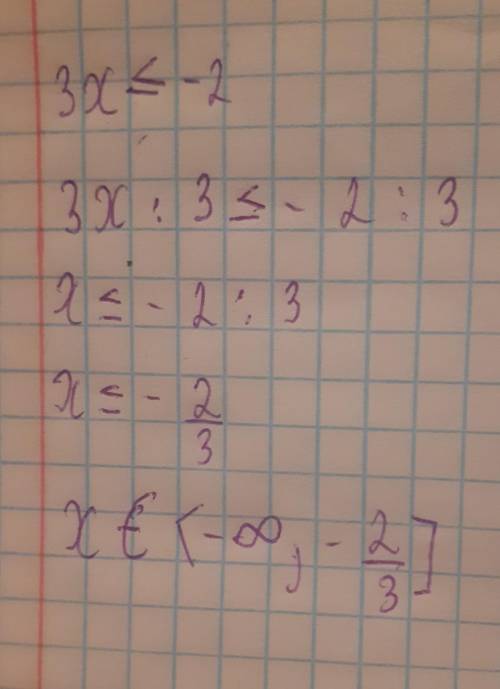 3x ≤ -2
3x : 3 ≤ - 2 : 3
x ≤ - 2 : 3
x ≤ - 2/3
x € ⟨-∞, - 2/3]